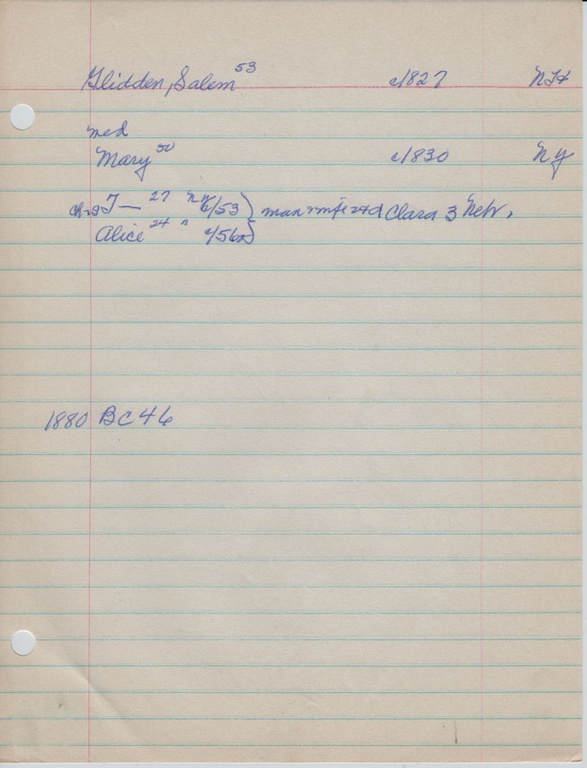 Glidden, Salem 53 c1827 NH
med
Mary 50 c1830 NY
T— 27 NY c/53 ) man & wife and Clara 3 Nebr.
Alice 24 " c/56
1880 BC46